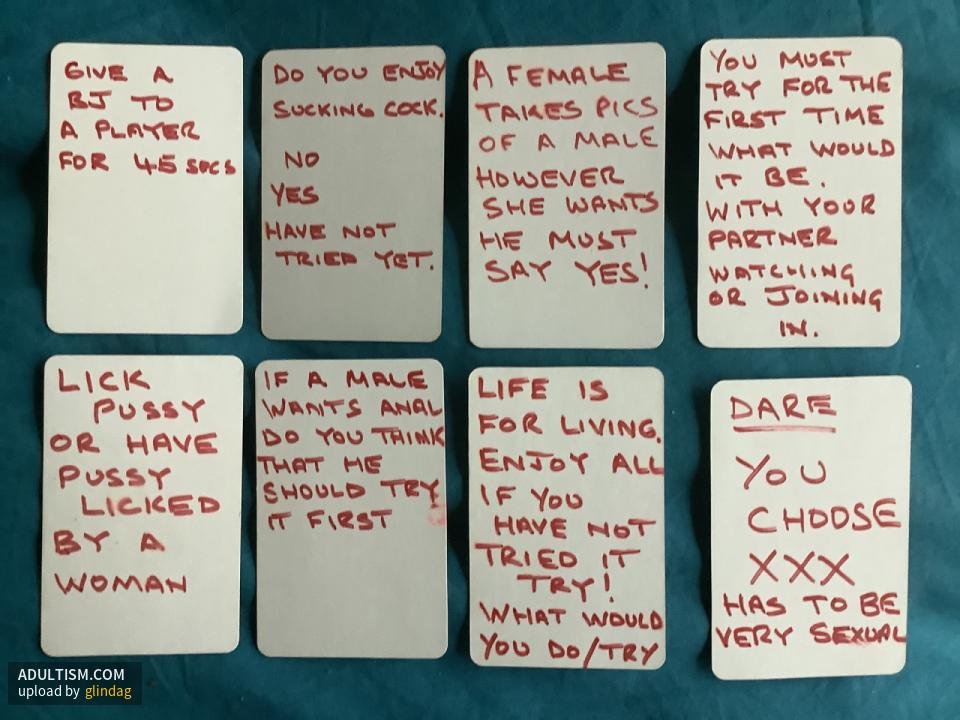 GIVE A
BJ TO
A PLAYER
FOR 45 SECS
DO YOU ENJOY
SUCKING COCK.
NO
YES
HAVE NOT
TRIED YET.
A FEMALE
TAKES PICS
OF A MALE
HOWEVER
SHE WANTS
HE MUST
SAY YES!
YOU MUST
TRY FOR THE
FIRST TIME
WHAT WOULD
IT BE.
WITH YOUR
PARTNER
WATCHING
OR JOINING
IN.
LICK
PUSSY
OR HAVE
PUSSY
LICKED
BY A
WOMAN
IF A MALE
WANTS ANAL
DO YOU THINK
THAT HE
SHOULD TRY
IT FIRST
LIFE IS
FOR LIVING.
ENJOY ALL
IF YOU
HAVE NOT
TRIED IT
TRY!
WHAT WOULD
YOU DO/TRY
DARE
YOU
CHOOSE
XXX
HAS TO BE
VERY SEXUAL
ADULTISM.COM
upload by glindag